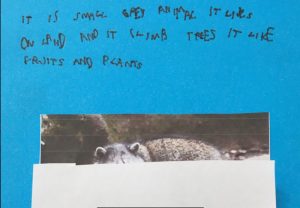 IT IS SMALL GREY ANIMAL IT LIVES
ON LAND AND IT CLIMB TREES IT LIKE
FRUITS AND PLANTS